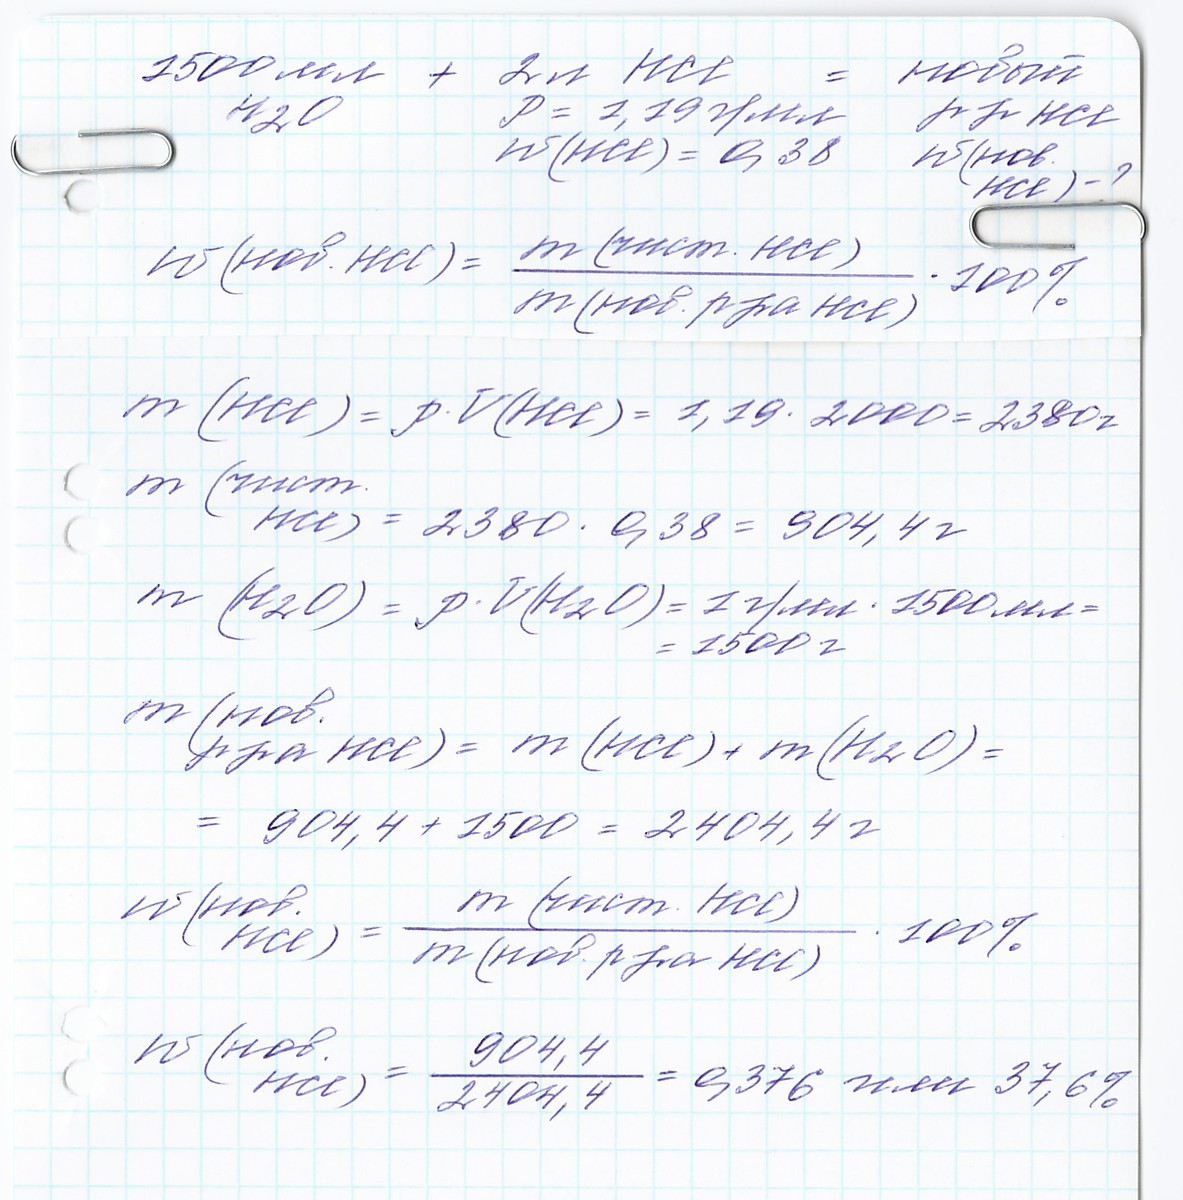 1500 мл + 2 л HCl = новый
H2O ρ = 1,19 г/мл р-р HCl
w(HCl) = 0,38 w(нов.
HCl) - ?
w(нов. HCl) = m(чист. HCl) / m(нов. р-ра HCl) · 100%
m (HCl) = ρ·V(HCl) = 1,19 · 2000 = 2380 г
m (чист.
HCl) = 2380 · 0,38 = 904,4 г
m (H2O) = ρ·V(H2O) = 1 г/мл · 1500 мл =
= 1500 г
m (нов.
р-ра HCl) = m(HCl) + m(H2O) =
= 904,4 + 1500 = 2404,4 г
w (нов.
HCl) = m (чист. HCl) / m(нов. р-ра HCl) · 100%
w (нов.
HCl) = 904,4 / 2404,4 = 0,376 или 37,6%